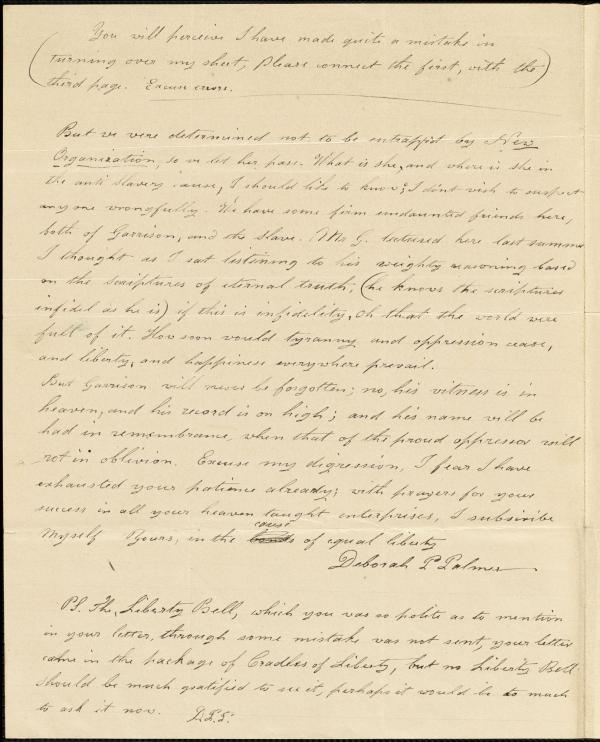 You will perceive I have made quite a mistake in
(turning over my sheet, Please connect the first, with the)
third page. Excuse errors.
But we were determined not to be entrapp'd by New
Organization, so we let her pass. What is she, and where is she in
the anti slavery cause, I should like to know; I don't wish to suspect
any one wrongfully. We have some firm undaunted friends here,
both of Garrison, and the slave. Mr G. lectured here last summer
I thought as I sat listening to his weighty reasoning based
on the scriptures of eternal truth; (he knows the scriptures
infidel as he is) if this is infidelity, Oh that the world were
full of it. How soon would tyranny and oppression cease,
and liberty, and happiness everywhere prevail.
But Garrison will never be forgotten; no, his witness is in
heaven, and his record is on high; and his name will be
had in remembrance, when that of the proud oppressor will
rot in oblivion. Excuse my digression, I fear I have
exhausted your patience already; with prayers for your
success in all your heaven taught enterprises, I subscribe
myself Yours, in the cause of equal liberty
Deborah P Palmer
PS. The, Liberty Bell, which you was so polite as to mention
in your letter, through some mistake was not sent, your letter
came in the package of Cradles of Liberty, but no Liberty Bell.
should be much gratified to see it, perhaps it would be to much
to ask it now. D.P.P.